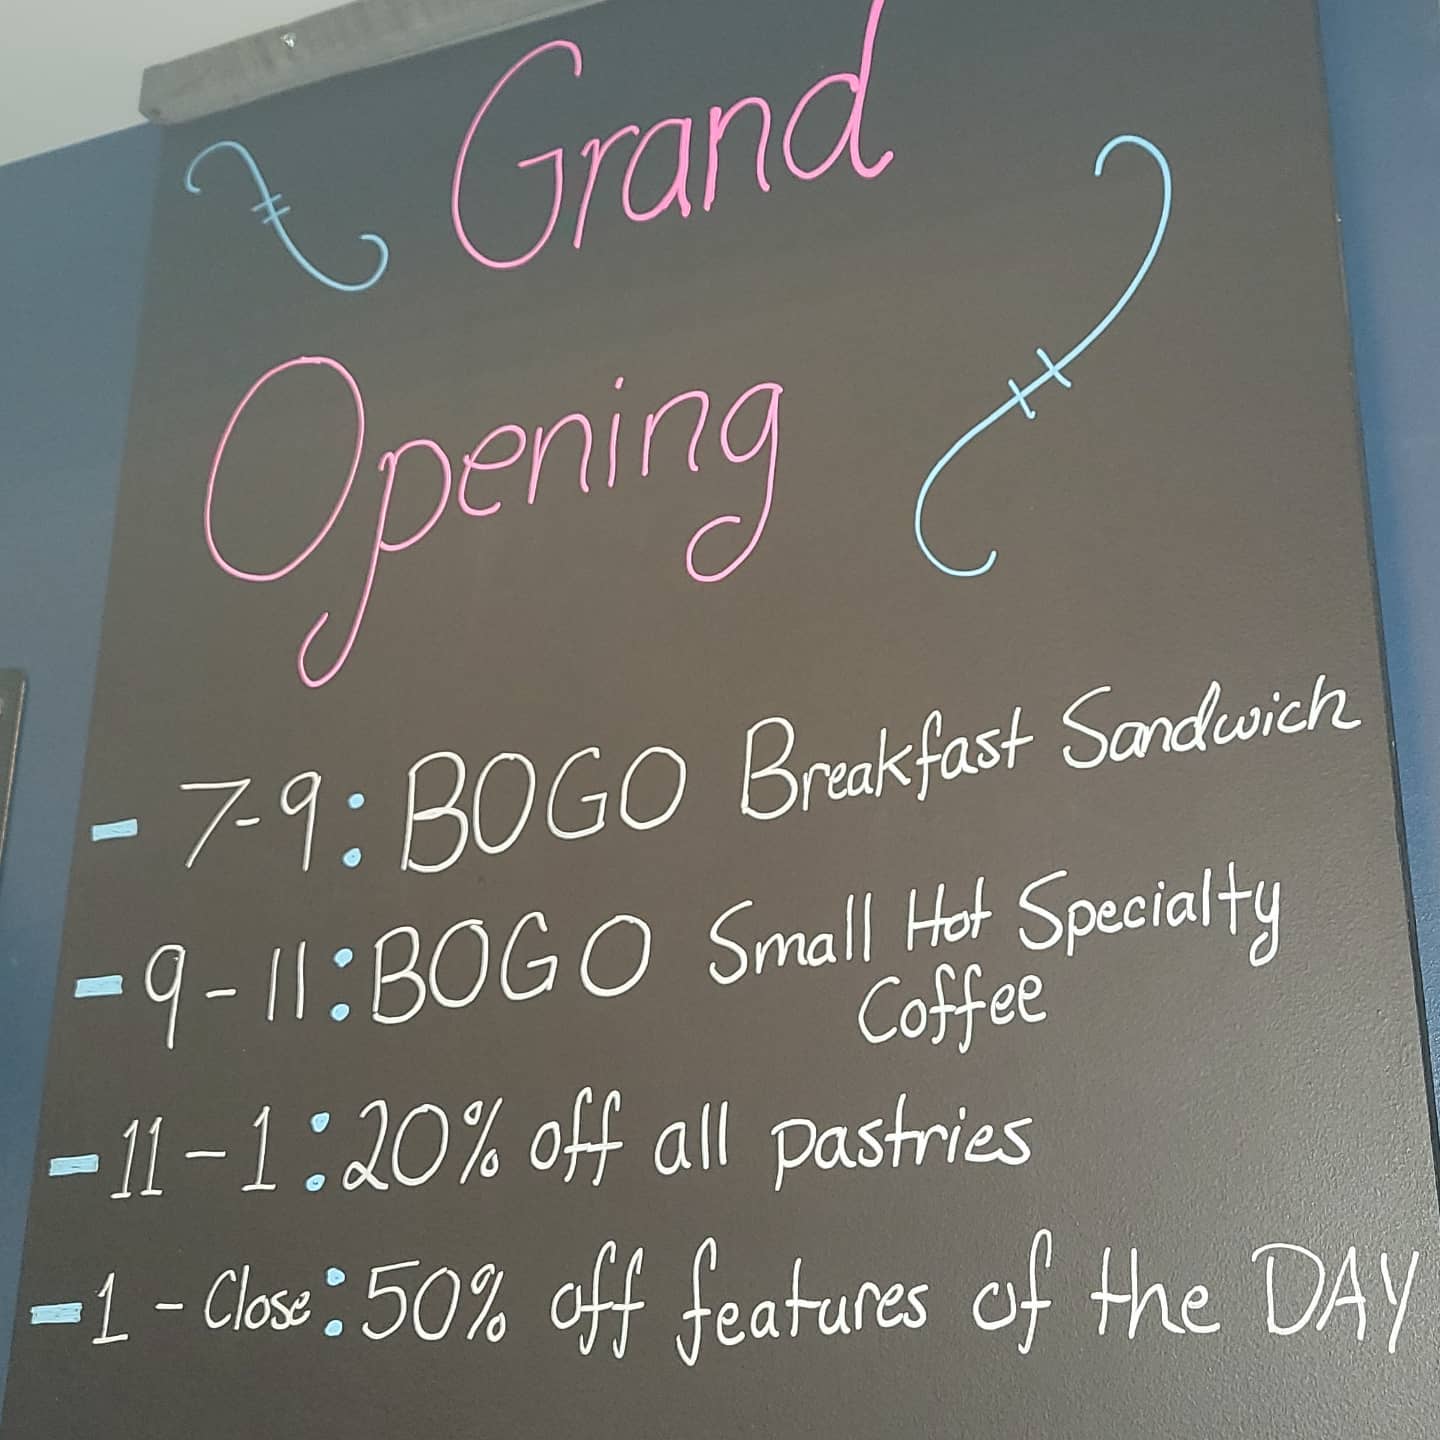 Grand
Opening
- 7-9: BOGO Breakfast Sandwich
- 9-11: BOGO Small Hot Specialty
Coffee
- 11-1: 20% off all pastries
- 1-Close: 50% off features of the DAY